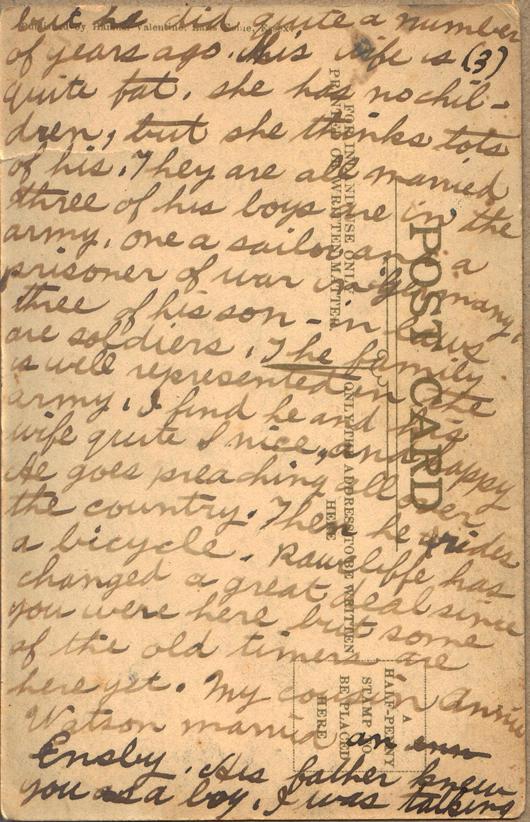 but he did quite a number
of years ago. His wife is (3)
quite fat, she has no chil-
dren, but she thinks lots
of his. They are all married
three of his boys are in the
army, one a sailor and a
prisoner of war in Germany,
three of his son-in laws
are soldiers. The family
is well represented in the
army. I find he and his
wife quite nice, and happy
He goes preaching all over
the country. Then he rides
a bicycle. Rawcliffe has
changed a great deal since
you were here but some
of the old timers are
here yet. My cousin Annie
Watson married an
Ensby. His father knew
you as a boy. I was talking
Published by Hannah Valentine,
POST CARD
FOR INLAND USE ONLY
PRINTED OR WRITTEN MATTER
ONLY THE ADDRESS TO BE WRITTEN
HERE
A
HALF-PENNY
STAMP TO
BE PLACED
HERE